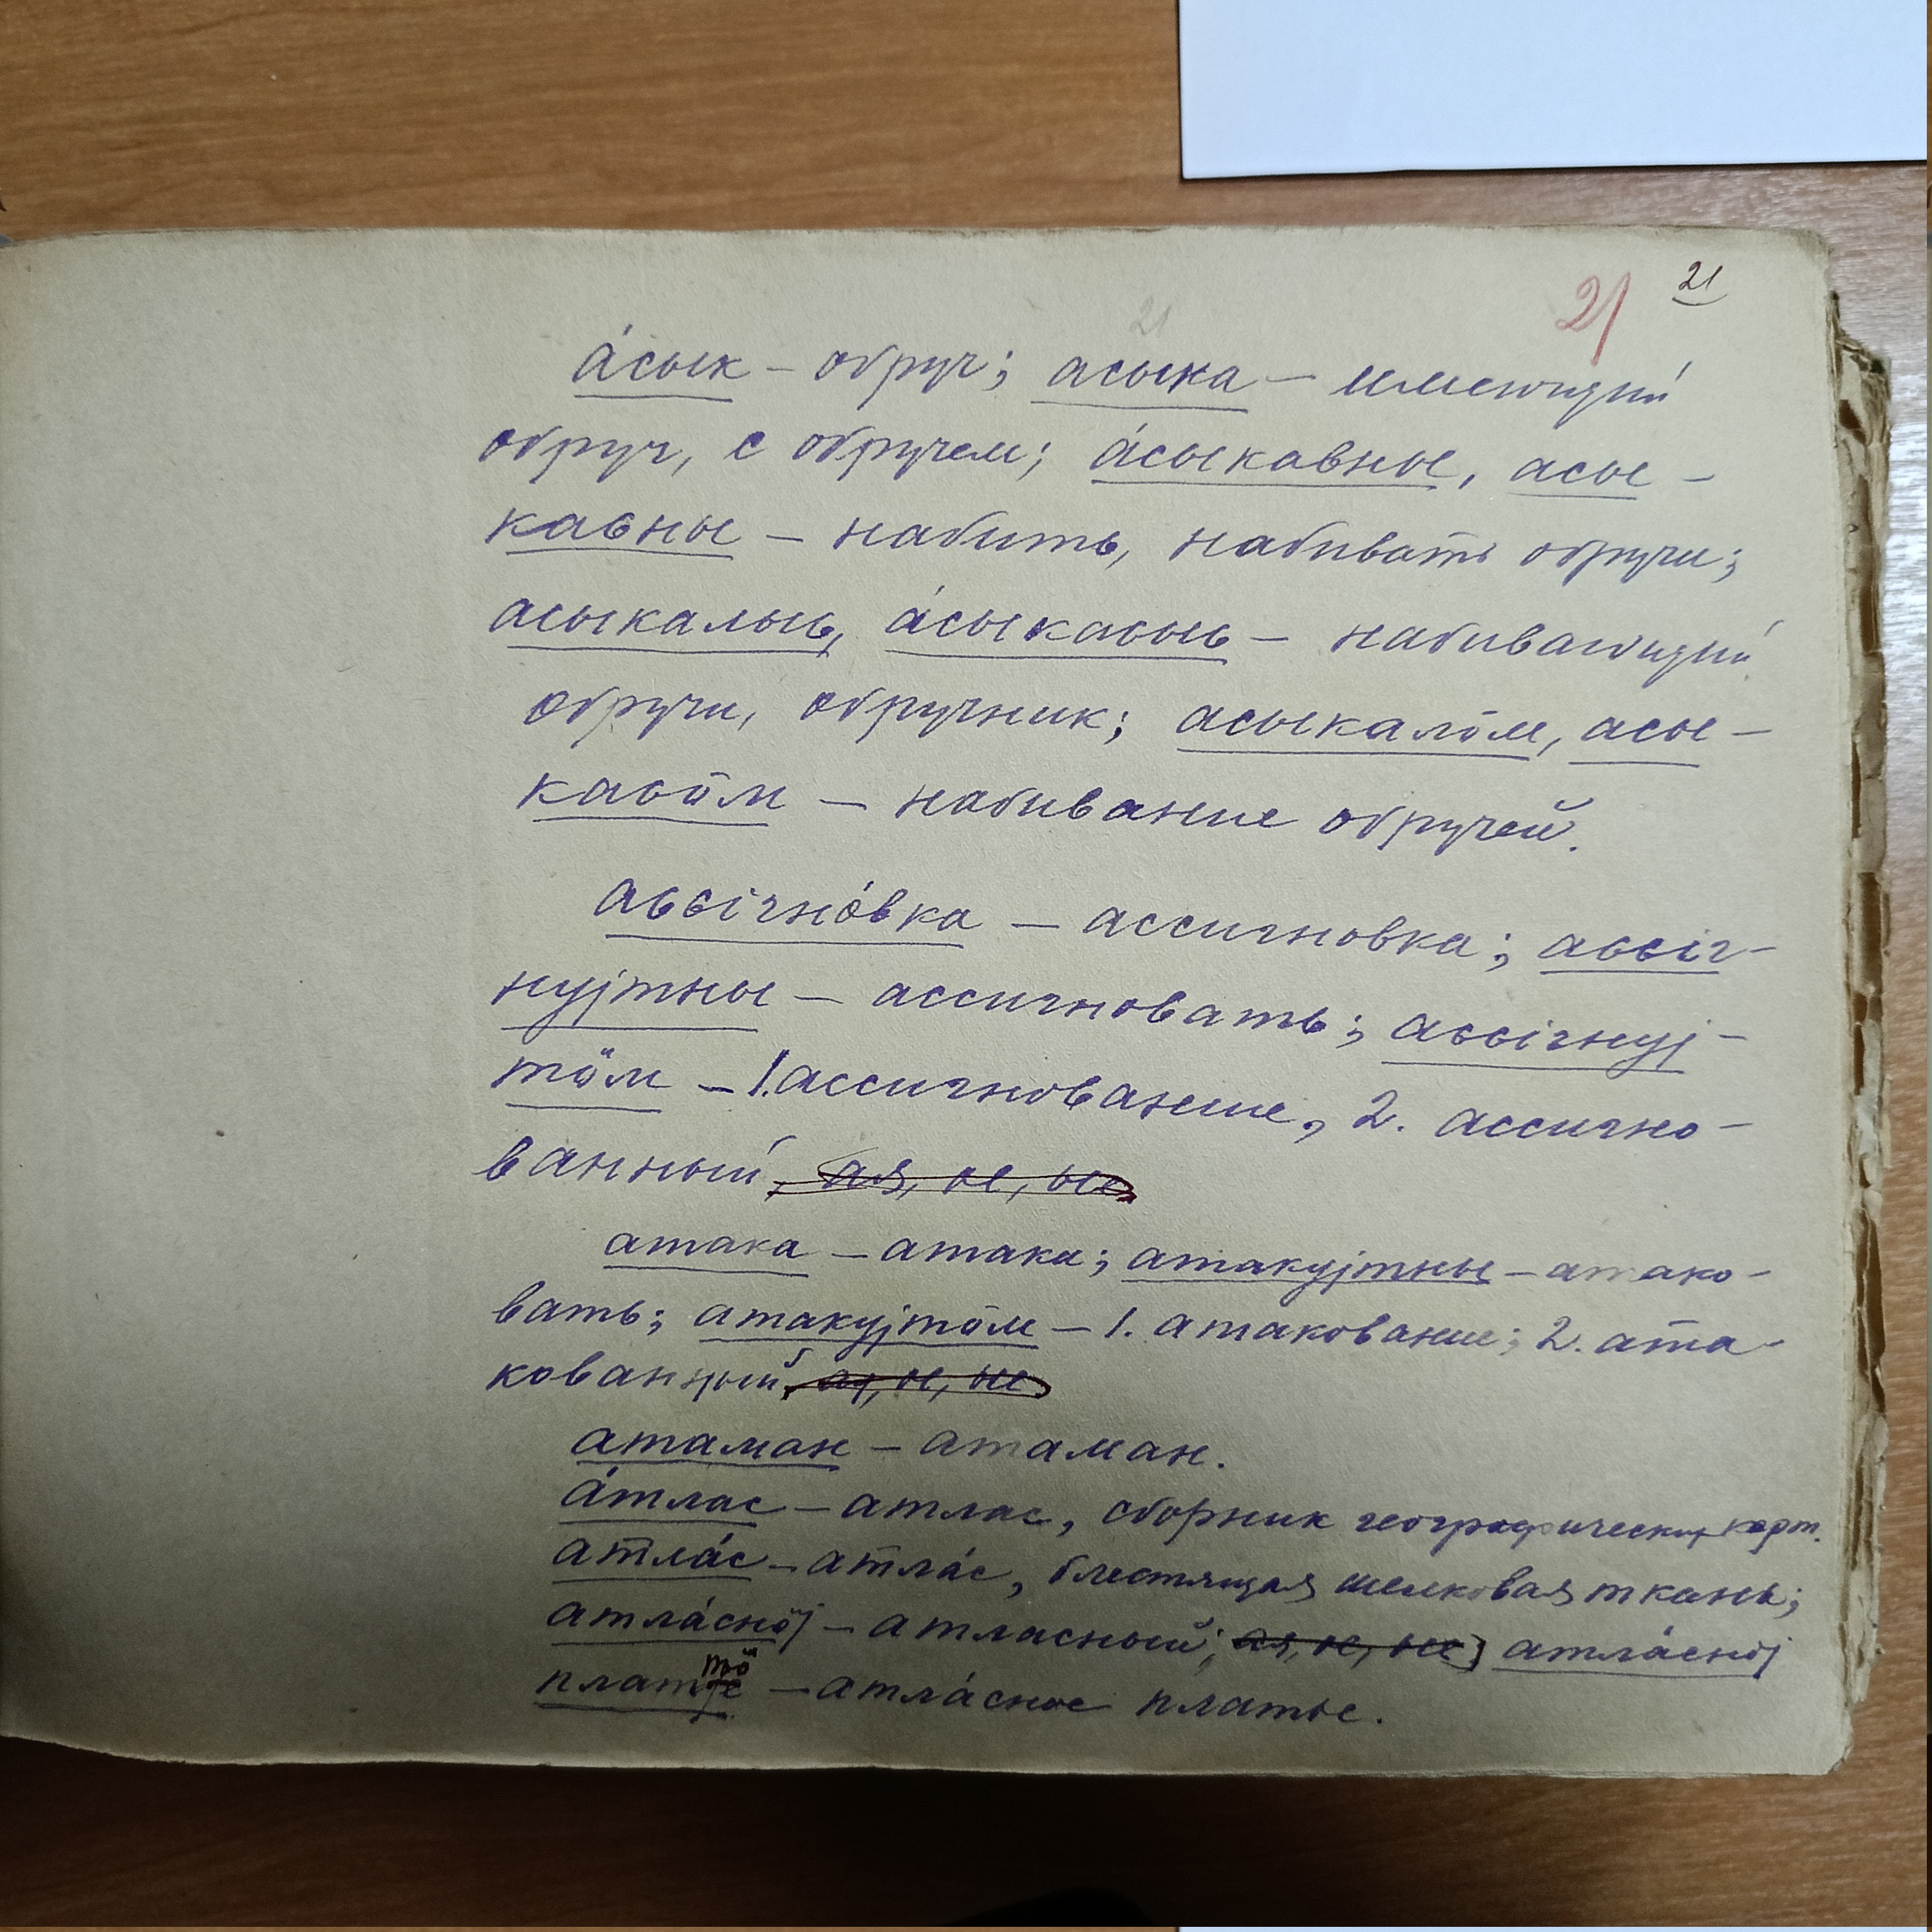 21 21
21
а́сык – обруч; асыка – имеющий
обруч, с обручем; а́сыкавны, асы-
каԍны – набить, набивать обручи;
асыкалыԍ, а́сыкаԍыԍ – набивающий
обручи, обручник; асыкалӧм, асы-
каԍӧм – набивание обручей.
аԍԍігно́вка – ассигновка; аԍԍіг-
нујтны – ассигновать; аԍԍігнуј-
тӧм – 1. ассигнование, 2. ассигно-
ванный, ая, ое, ые
атака – атака; атакујтны – атако-
вать; атакујтӧм – 1. атакование; 2. ата-
кованный, ая, ое, ые
атаман – атаман.
а́тлас – атлас, сборник географических карт.
атла́с – атла́с, блестящая шелковая ткань;
атла́снӧј – атласный; ая, ое, ые; атла́снӧј
тӧ
платје – атла́сное платье.